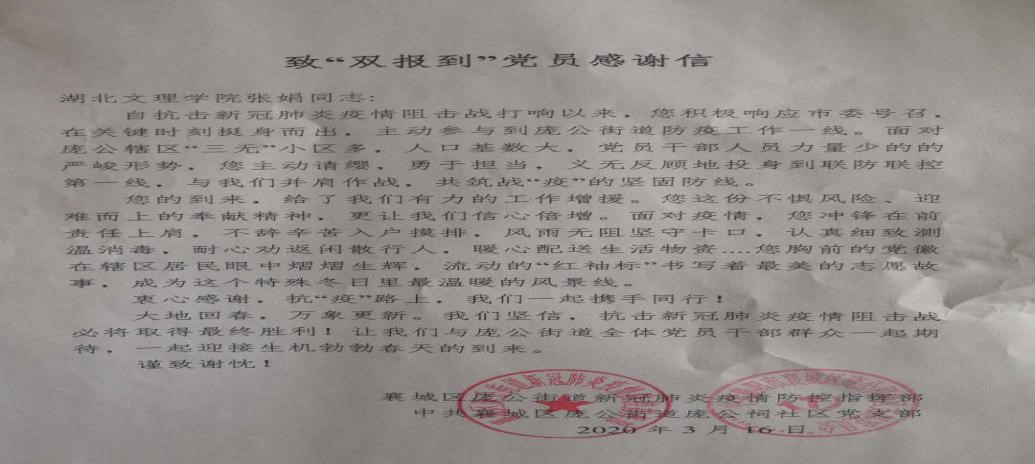 致“双报到”党员感谢信
湖北文理学院张娟同志:
自抗击新冠肺炎疫情阻击战打响以来，您积极响应市委号召，
在关键时刻挺身而出，主动参与到庞公街道防疫工作一线。面对
庞公辖区“三无”小区多，人口基数大，党员干部人员力量少的的
严峻形势，您主动请缨，勇于担当，义无反顾地投身到联防联控
第一线，与我们并肩作战，共筑战“疫”的坚固防线。
您的到来，给了我们有力的工作增援。您这份不惧风险、迎
难而上的奉献精神，更让我们信心倍增。面对疫情，您冲锋在前
责任上肩，不辞辛苦入户摸排，风雨无阻坚守卡口，认真细致测
温消毒，耐心劝返闲散行人，暖心配送生活物资....您胸前的党徽
在辖区居民眼中熠熠生辉，流动的“红袖标”书写着最美的志愿故
事，成为这个特殊冬日里最温暖的风景线。
衷心感谢，抗“疫”路上，我们一起携手同行！
大地回春，万象更新。我们坚信，抗击新冠肺炎疫情阻击战
必将取得最终胜利！让我们与庞公街道全体党员干部群众一起期
待，一起迎接生机勃勃春天的到来。
谨致谢忱！
襄城区庞公街道新冠肺炎疫情防控指挥部
中共襄城区庞公街道庞公祠社区党支部
2020 年 3 月 16 日